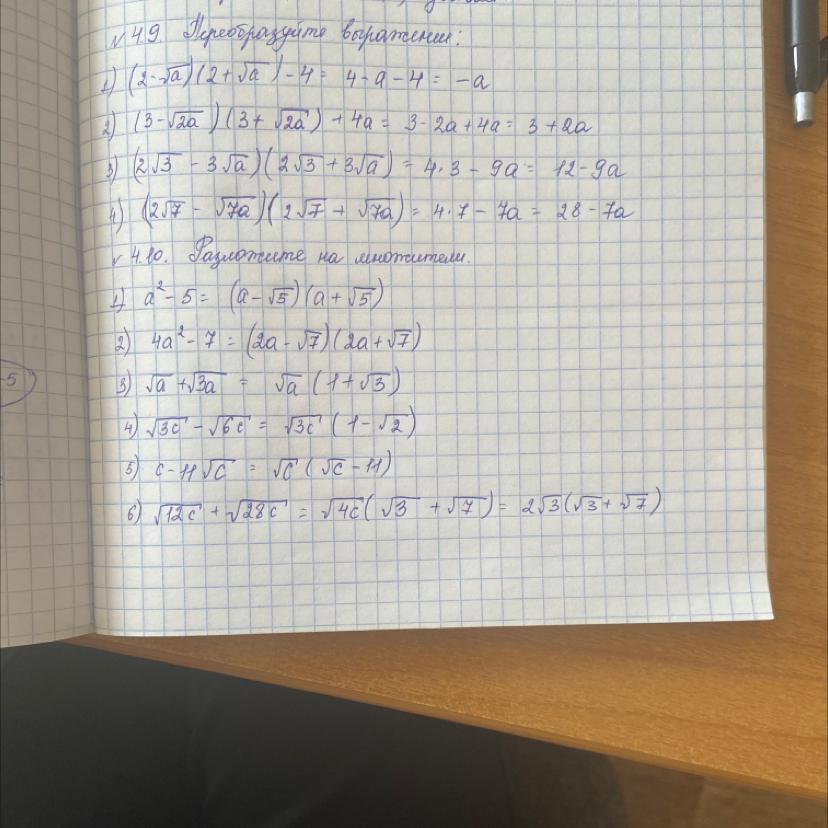 № 4.9. Преобразуйте выражения:
1) (2-√a)(2+√a) - 4 = 4 - a - 4 = -a
2) (3-√2a)(3+√2a) + 4a = 3 - 2a + 4a = 3 + 2a
3) (2√3 - 3√a)(2√3 + 3√a) = 4·3 - 9a = 12 - 9a
4) (2√7 - √7a)(2√7 + √7a) = 4·7 - 7a = 28 - 7a
√ 4.10. Разложите на множители.
1) a² - 5 = (a - √5)(a + √5)
2) 4a² - 7 = (2a - √7)(2a + √7)
3) √a + √3a = √a (1 + √3)
4) √3c - √6c = √3c (1 - √2)
5) c - 11√c = √c (√c - 11)
6) √12c + √28c = √4c (√3 + √7) = 2√3 (√3 + √7)
-5